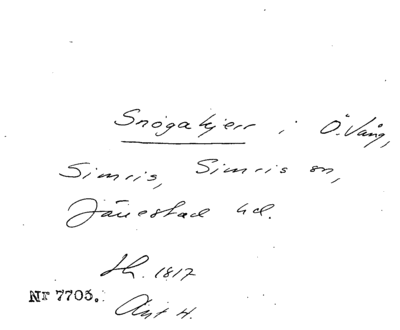 Snogakjerr i Ö. Vång,
Simris, Simris sn,
Järrestad hd.
Sh. 1817
Nr 7705.
Akt 4.